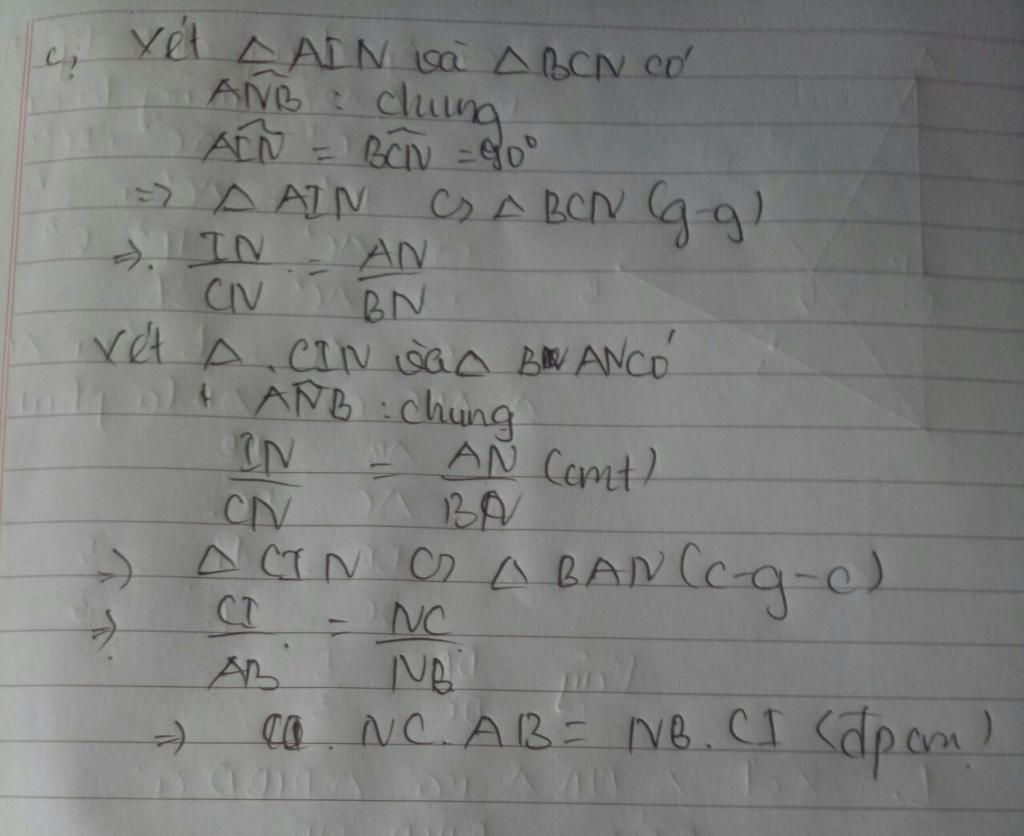 c, Xét △ AIN và △ BCN có
ANB : chung
AIN = BCN = 90°
=> △ AIN ∽ △ BCN (g-g)
=> IN/CN = AN/BN
Xét △ CIN và △ BAN có
+ ANB : chung
IN/CN = AN/BN (cmt)
=> △ CIN ∽ △ BAN (c-g-c)
=> CI/AB = NC/NB
=> NC. AB = NB. CI (đpcm)